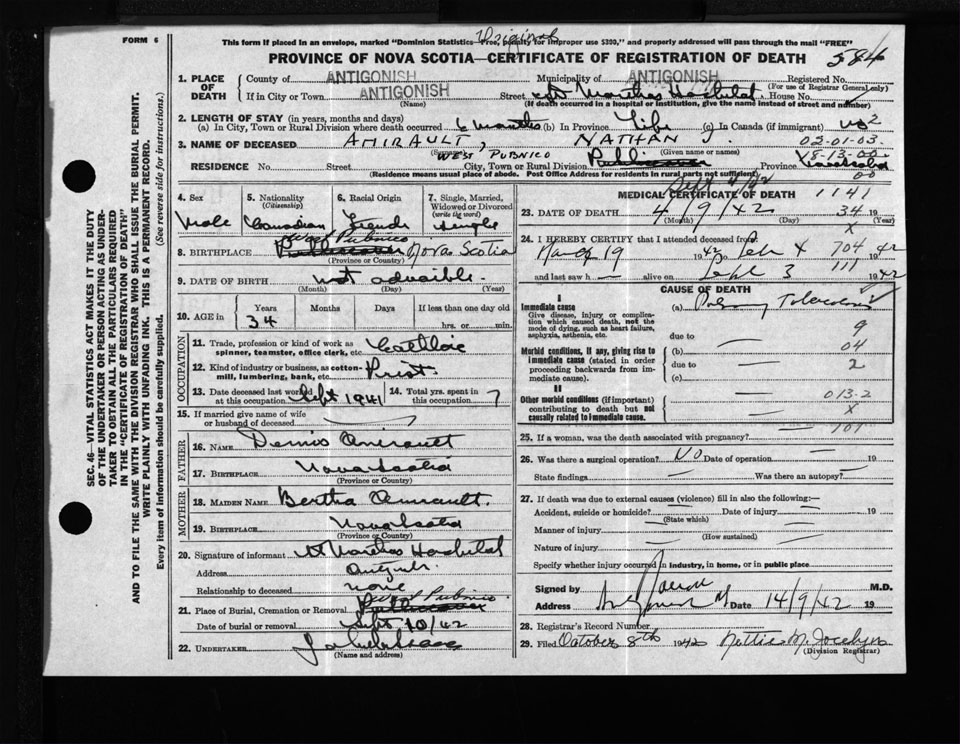 FORM 6
Original
This form if placed in an envelope, marked "Dominion Statistics—Free, penalty for improper use $300," and properly addressed will pass through the mail "FREE"
PROVINCE OF NOVA SCOTIA—CERTIFICATE OF REGISTRATION OF DEATH 584
1. PLACE OF DEATH County of ANTIGONISH Municipality of ANTIGONISH Registered No.
(For use of Registrar General only)
If in City or Town ANTIGONISH Street St Marthas Hospital House No.
(Name) (If death occurred in a hospital or institution, give the name instead of street and number)
2. LENGTH OF STAY (in years, months and days)
(a) In City, Town or Rural Division where death occurred 6 months (b) In Province Life (c) In Canada (if immigrant) no 2
3. NAME OF DECEASED AMIRAULT, NATHAN J. 02-01-03
(Given name or names)
RESIDENCE No. Street WEST PUBNICO City, Town or Rural Division Province
(Residence means usual place of abode. Post Office Address for residents in rural parts not sufficient) 00
4. Sex 5. Nationality (Citizenship) 6. Racial Origin 7. Single, Married, Widowed or Divorced (write the word)
Male Canadian French Single
8. BIRTHPLACE West Pubnico Nova Scotia
(Province or Country)
9. DATE OF BIRTH not
(Month) (Day) (Year)
10. AGE in Years Months Days If less than one day old
34 hrs. or min.
OCCUPATION
11. Trade, profession or kind of work as spinner, teamster, office clerk, etc. Catholic
12. Kind of industry or business, as cotton-mill, lumbering, bank, etc. Priest
13. Date deceased last worked at this occupation Sept 1941 14. Total yrs. spent in this occupation 7
15. If married give name of wife or husband of deceased
FATHER
16. NAME Dennis Amirault
17. BIRTHPLACE Nova Scotia
(Province or Country)
MOTHER
18. MAIDEN NAME Bertha Amirault
19. BIRTHPLACE Nova Scotia
(Province or Country)
20. Signature of informant St Marthas Hospital
Address Antigonish
Relationship to deceased none
21. Place of Burial, Cremation or Removal West Pubnico
Date of burial or removal Sept 10/42
22. UNDERTAKER
(Name and address)
Sept 4/42
MEDICAL CERTIFICATE OF DEATH 1141
23. DATE OF DEATH 4 9 42 34 19
(Month) (Day) (Year)
X
24. I HEREBY CERTIFY that I attended deceased from
March 19 1942 to Sept 4 704 1942
and last saw h alive on Sept 3 111 1942
CAUSE OF DEATH
I
Immediate cause (a) Pulmonary Tuberculosis
Give disease, injury or complication which caused death, not the mode of dying, such as heart failure, asphyxia, asthenia, etc.
due to 9
Morbid conditions, if any, giving rise to immediate cause (stated in order proceeding backwards from immediate cause).
(b) 04
due to 2
(c)
II
Other morbid conditions (if important) contributing to death but not causally related to immediate cause.
013-2
X
101
25. If a woman, was the death associated with pregnancy?
26. Was there a surgical operation? NO Date of operation 19
State findings Was there an autopsy?
27. If death was due to external causes (violence) fill in also the following:—
Accident, suicide or homicide? Date of injury 19
(State which)
Manner of injury
(How sustained)
Nature of injury
Specify whether injury occurred in industry, in home, or in public place
Signed by M.D.
Address Date 14/9/42 19
28. Registrar's Record Number
29. Filed October 8th 1942 Nettie M. Jocelyn
(Division Registrar)
SEC. 46—VITAL STATISTICS ACT MAKES IT THE DUTY
OF THE UNDERTAKER OR PERSON ACTING AS UNDER-
TAKER TO OBTAIN ALL THE PARTICULARS REQUIRED
IN THE "CERTIFICATE OF REGISTRATION OF DEATH"
AND TO FILE THE SAME WITH THE DIVISION REGISTRAR WHO SHALL ISSUE THE BURIAL PERMIT.
WRITE PLAINLY WITH UNFADING INK. THIS IS A PERMANENT RECORD.
Every item of information should be carefully supplied. (See reverse side for instructions.)